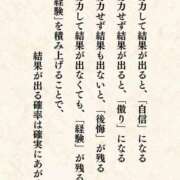 力して結果が出ると、「自信」になる
力せず結果が出ると、「傲り」になる
力せず結果も出ないと、「後悔」が残る
力して結果が出なくても、「経験」が残る
経験」を積み上げることで、
結果が出る確率は確実にあが